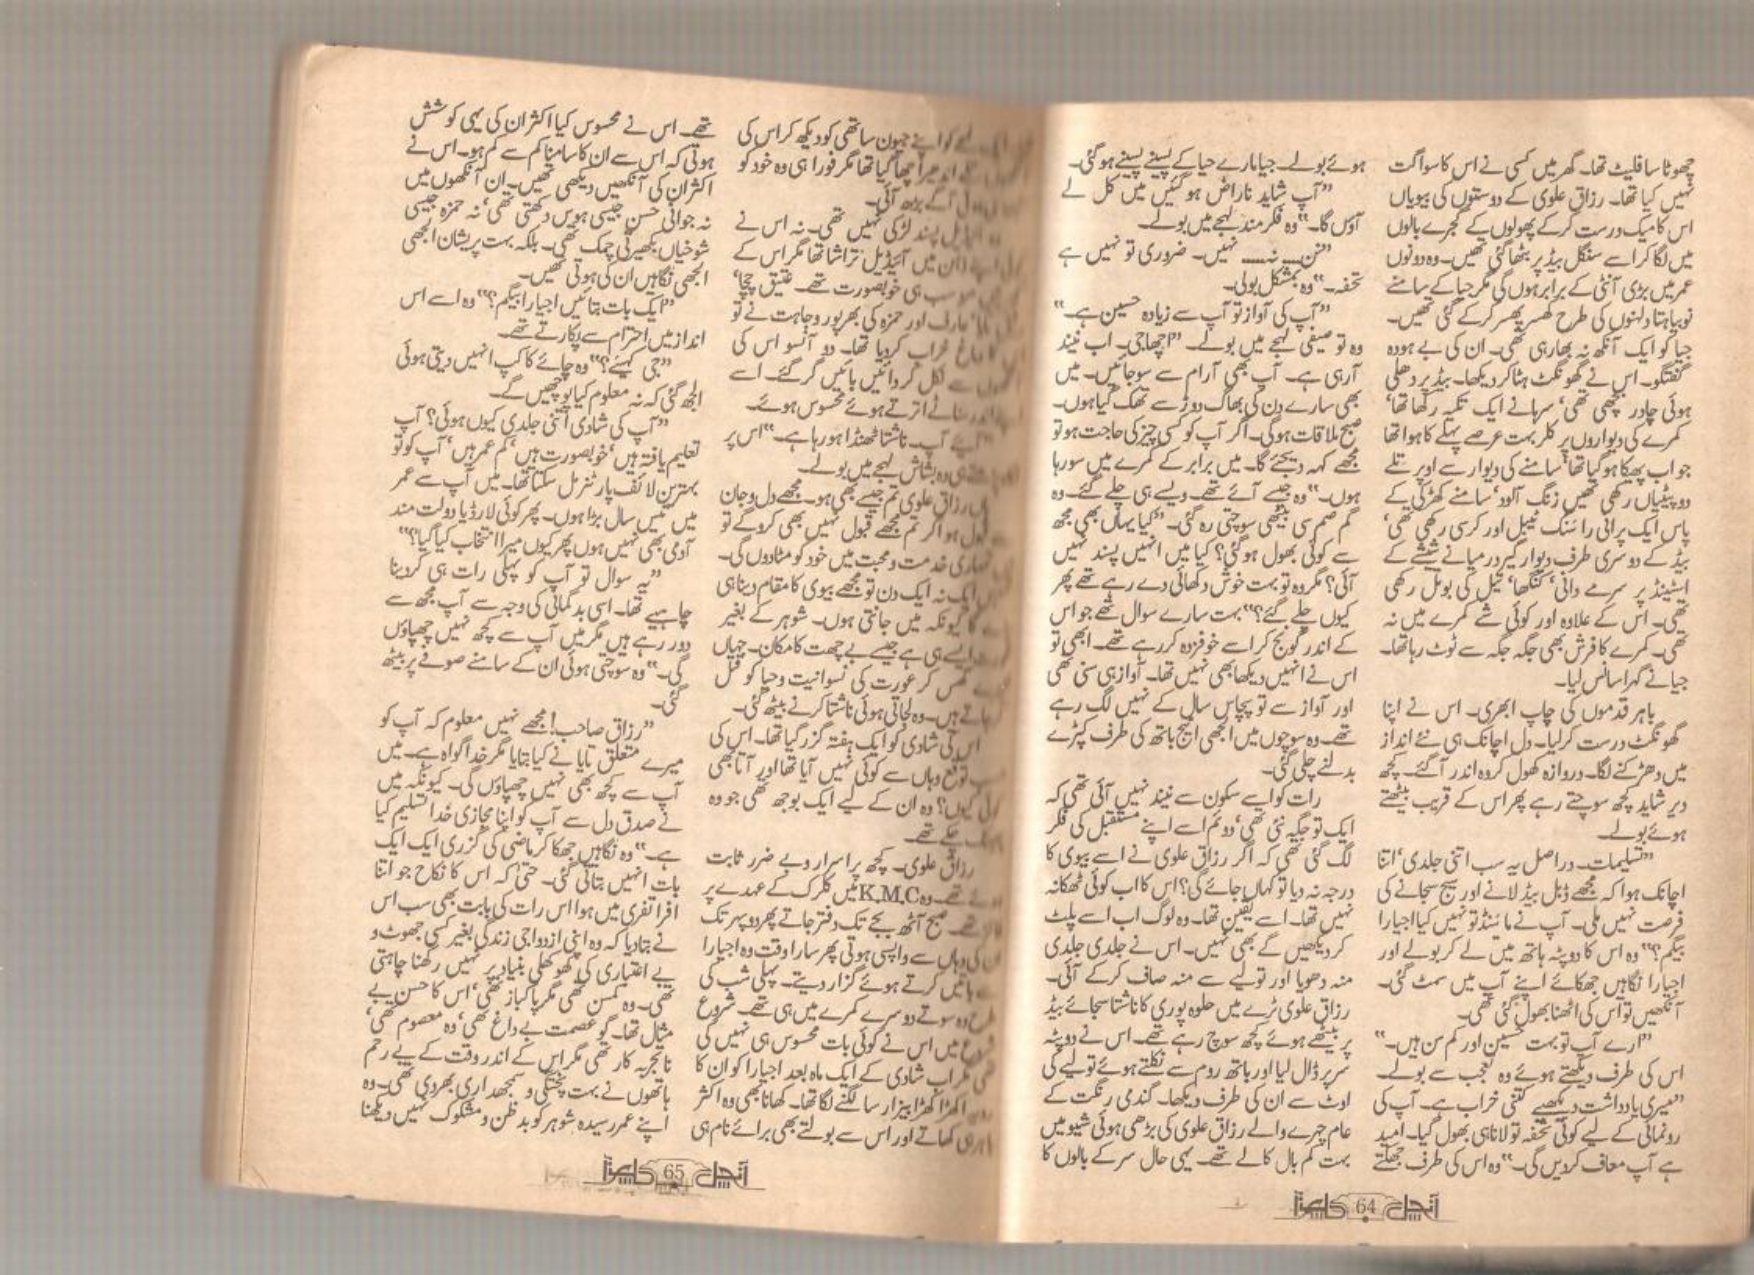 چھوٹا سا فلیٹ تھا۔ گھر میں کسی نے اس کا سواگت
نہیں کیا تھا۔ رزاق علوی کے دوستوں کی بیویاں
اس کا میک درست کر کے پھولوں کے گجرے بالوں
میں لگا کر اسے سنگل بیڈ پر بٹھا گئی تھیں۔ وہ دونوں
عمر میں بڑی آنٹی کے برابر ہوں گی مگر حیا کے سامنے
نوبیاہتا دلہنوں کی طرح کھسر پھسر کر کے گئی تھیں۔
جیا کو ایک آنکھ نہ بھا رہی تھی۔ ان کی بے ہودہ
گفتگو۔ اس نے گھونگٹ ہٹا کر دیکھا۔ بیڈ پر دھلی
ہوئی چادر بچھی تھی‘ سرہانے ایک تکیہ رکھا تھا‘
کمرے کی دیواروں پر کلر بہت عرصے پہلے کا ہوا تھا
جو اب پھیکا ہو گیا تھا‘ سامنے کی دیوار سے اوپر تلے
دو پیٹیاں رکھی تھیں زنگ آلود‘ سامنے کھڑکی کے
پاس ایک پرانی رائٹنگ ٹیبل اور کرسی رکھی تھی‘
بیڈ کے دوسری طرف دیوار گیر درمیانے شیشے کے
اسٹینڈ پر سرمے دانی‘ کنگھا‘ تیل کی بوتل رکھی
تھی۔ اس کے علاوہ اور کوئی شے کمرے میں نہ
تھی۔ کمرے کا فرش بھی جگہ جگہ سے ٹوٹ رہا تھا۔
جیا نے گہرا سانس لیا۔
باہر قدموں کی چاپ ابھری۔ اس نے اپنا
گھونگٹ درست کر لیا۔ دل اچانک ہی نئے انداز
میں دھڑکنے لگا۔ دروازہ کھول کر وہ اندر آ گئے۔ کچھ
دیر شاید کچھ سوچتے رہے پھر اس کے قریب بیٹھتے
ہوئے بولے۔
”تسلیمات۔ دراصل یہ سب اتنی جلدی‘ اتنا
اچانک ہوا کہ مجھے ڈبل بیڈ لانے اور سیج سجانے کی
فرصت نہیں ملی۔ آپ نے مائنڈ تو نہیں کیا اجیارا
بیگم؟“ وہ اس کا دوپٹہ ہاتھ میں لے کر بولے اور
اجیارا نگاہیں جھکائے اپنے آپ میں سمٹ گئی۔
آنکھیں تو اس کی اٹھنا بھول گئی تھی۔
”ارے آپ تو بہت حسین اور کم سن ہیں۔“
اس کی طرف دیکھتے ہوئے وہ تعجب سے بولے۔
”میری یادداشت دیکھیے کتنی خراب ہے۔ آپ کی
رونمائی کے لیے کوئی تحفہ تو لانا ہی بھول گیا۔ امید
ہے آپ معاف کر دیں گی۔“ وہ اس کی طرف جھکتے
ہوئے بولے۔ جیا مارے حیا کے پسینے پسینے ہو گئی۔
”آپ شاید ناراض ہو گئیں میں کل لے
آؤں گا۔“ وہ فکر مند لہجے میں بولے۔
”نن..... نہ..... نہیں۔ ضروری تو نہیں ہے
تحفہ۔“ وہ بمشکل بولی۔
”آپ کی آواز تو آپ سے زیادہ حسین ہے۔“
وہ توصیفی لہجے میں بولے۔ ”اچھا جی۔ اب نیند
آ رہی ہے۔ آپ بھی آرام سے سو جائیں۔ میں
بھی سارے دن کی بھاگ دوڑ سے تھک گیا ہوں۔
صبح ملاقات ہوگی۔ اگر آپ کو کسی چیز کی حاجت ہو تو
مجھے کہہ دیجئے گا۔ میں برابر کے کمرے میں سو رہا
ہوں۔“ وہ جیسے آئے تھے۔ ویسے ہی چلے گئے۔ وہ
گم صم سی بیٹھی سوچتی رہ گئی۔ ”کیا یہاں بھی مجھ
سے کوئی بھول ہو گئی؟ کیا میں انہیں پسند نہیں
آئی؟ مگر وہ تو بہت خوش دکھائی دے رہے تھے پھر
کیوں چلے گئے؟“ بہت سارے سوال تھے جو اس
کے اندر گونج کر اسے خوفزدہ کر رہے تھے۔ ابھی تو
اس نے انہیں دیکھا بھی نہیں تھا۔ آواز ہی سنی تھی
اور آواز سے تو پچاس سال کے نہیں لگ رہے
تھے۔ وہ سوچوں میں الجھی اٹیچ باتھ کی طرف کپڑے
بدلنے چلی گئی۔
رات کو اسے سکون سے نیند نہیں آئی تھی کہ
ایک تو جگہ نئی تھی‘ دوئم اسے اپنے مستقبل کی فکر
لگ گئی تھی کہ اگر رزاق علوی نے اسے بیوی کا
درجہ نہ دیا تو کہاں جائے گی؟ اس کا اب کوئی ٹھکانہ
نہیں تھا۔ اسے یقین تھا۔ وہ لوگ اب اسے پلٹ
کر دیکھیں گے بھی نہیں۔ اس نے جلدی جلدی
منہ دھویا اور تولیے سے منہ صاف کر کے آئی۔
رزاق علوی ٹرے میں حلوہ پوری کا ناشتا سجائے بیڈ
پر بیٹھے ہوئے کچھ سوچ رہے تھے۔ اس نے دوپٹہ
سر پر ڈال لیا اور باتھ روم سے نکلتے ہوئے تولیے کی
اوٹ سے ان کی طرف دیکھا۔ گندمی رنگت کے
عام چہرے والے رزاق علوی کی بڑھی ہوئی شیو میں
بہت کم بال کالے تھے۔ یہی حال سر کے بالوں کا
آنچل 64
لمحے کو اپنے جیون ساتھی کو دیکھ کر اس کی
اندھیرا چھا گیا تھا مگر فوراً ہی وہ خود کو
آگے بڑھ آئی۔
پسند لڑکی نہیں تھی۔ نہ اس نے
میں آئیڈیل تراشا تھا مگر اس کے
سب ہی خوبصورت تھے۔ عتیق چچا‘
عارف اور حمزہ کی بھرپور وجاہت نے تو
دماغ خراب کر دیا تھا۔ دو آنسو اس کی
سے نکل کر دائیں بائیں گر گئے۔ اسے
اترتے ہوئے محسوس ہوئے۔
آپ۔ ناشتا ٹھنڈا ہو رہا ہے۔“ اس پر
ہی وہ بشاش لہجے میں بولے۔
رزاق علوی تم جیسے بھی ہو۔ مجھے دل و جان
ہو اگر تم مجھے قبول نہیں بھی کرو گے تو
خدمت و محبت میں خود کو مٹا دوں گی۔
ایک نہ ایک دن تو مجھے بیوی کا مقام دینا ہی
کیونکہ میں جانتی ہوں۔ شوہر کے بغیر
ایسے ہی ہے جیسے بے چھت کا مکان۔ جہاں
گھس کر عورت کی نسوانیت و حیا کو قتل
جاتے ہیں۔ وہ لجاتی ہوئی ناشتا کرنے بیٹھ گئی۔
اس کی شادی کو ایک ہفتہ گزر گیا تھا۔ اس کی
توقع وہاں سے کوئی نہیں آیا تھا اور آتا بھی
کیوں؟ وہ ان کے لیے ایک بوجھ تھی جو وہ
چکے تھے۔
رزاق علوی۔ کچھ پراسرار و بے ضرر ثابت
تھے۔ وہ K.M.C میں کلرک کے عہدے پر
صبح آٹھ بجے تک دفتر جاتے پھر دوپہر تک
وہاں سے واپسی ہوتی پھر سارا وقت وہ اجیارا
باتیں کرتے ہوئے گزار دیتے۔ پہلی شب کی
وہ سوتے دوسرے کمرے میں ہی تھے۔ شروع
میں اس نے کوئی بات محسوس ہی نہیں کی
اب شادی کے ایک ماہ بعد اجیارا کو ان کا
اکھڑا اکھڑا بیزار سا لگنے لگا تھا۔ کھانا بھی وہ اکثر
کھاتے اور اس سے بولتے بھی برائے نام ہی
تھے۔ اس نے محسوس کیا اکثر ان کی یہی کوشش
ہوتی کہ اس سے ان کا سامنا کم سے کم ہو۔ اس نے
اکثر ان کی آنکھیں دیکھی تھیں۔ ان آنکھوں میں
نہ جوانی حسن جیسی ہوس دکھتی تھی‘ نہ حمزہ جیسی
شوخیاں بکھیرتی چمک تھی۔ بلکہ بہت پریشان الجھی
الجھی نگاہیں ان کی ہوتی تھیں۔
”ایک بات بتائیں اجیارا بیگم؟“ وہ اسے اس
انداز میں احترام سے پکارتے تھے۔
”جی کہئے؟“ وہ چائے کا کپ انہیں دیتی ہوئی
الجھ گئی کہ نہ معلوم کیا پوچھیں گے۔
”آپ کی شادی اتنی جلدی کیوں ہوئی؟ آپ
تعلیم یافتہ ہیں‘ خوبصورت ہیں‘ کم عمر ہیں‘ آپ کو تو
بہترین لائف پارٹنر مل سکتا تھا۔ میں آپ سے عمر
میں تیس سال بڑا ہوں۔ پھر کوئی لارڈ یا دولت مند
آدمی بھی نہیں ہوں پھر کیوں میرا انتخاب کیا گیا؟“
”یہ سوال تو آپ کو پہلی رات ہی کر دینا
چاہیے تھا۔ اسی بدگمانی کی وجہ سے آپ مجھ سے
دور رہے ہیں مگر میں آپ سے کچھ نہیں چھپاؤں
گی۔“ وہ سوچتی ہوئی ان کے سامنے صوفے پر بیٹھ
گئی۔
”رزاق صاحب! مجھے نہیں معلوم کہ آپ کو
میرے متعلق تایا نے کیا بتایا مگر خدا گواہ ہے۔ میں
آپ سے کچھ بھی نہیں چھپاؤں گی۔ کیونکہ میں
نے صدق دل سے آپ کو اپنا مجازی خدا تسلیم کیا
ہے۔“ وہ نگاہیں جھکا کر ماضی کی گزری ایک ایک
بات انہیں بتاتی گئی۔ حتیٰ کہ اس کا نکاح جو اتنا
افراتفری میں ہوا اس رات کی بابت بھی سب اس
نے بتا دیا کہ وہ اپنی ازدواجی زندگی بغیر کسی جھوٹ و
بے اعتباری کی کھوکھلی بنیاد پر نہیں رکھنا چاہتی
تھی۔ وہ کمسن تھی مگر پاکباز تھی‘ اس کا حسن بے
مثال تھا۔ گو عصمت بے داغ تھی‘ وہ معصوم تھی‘
ناتجربہ کار تھی مگر اس کے اندر وقت کے بے رحم
ہاتھوں نے بہت پختگی و سمجھداری بھر دی تھی۔ وہ
اپنے عمر رسیدہ شوہر کو بدظن و مشکوک نہیں دیکھنا
آنچل 65